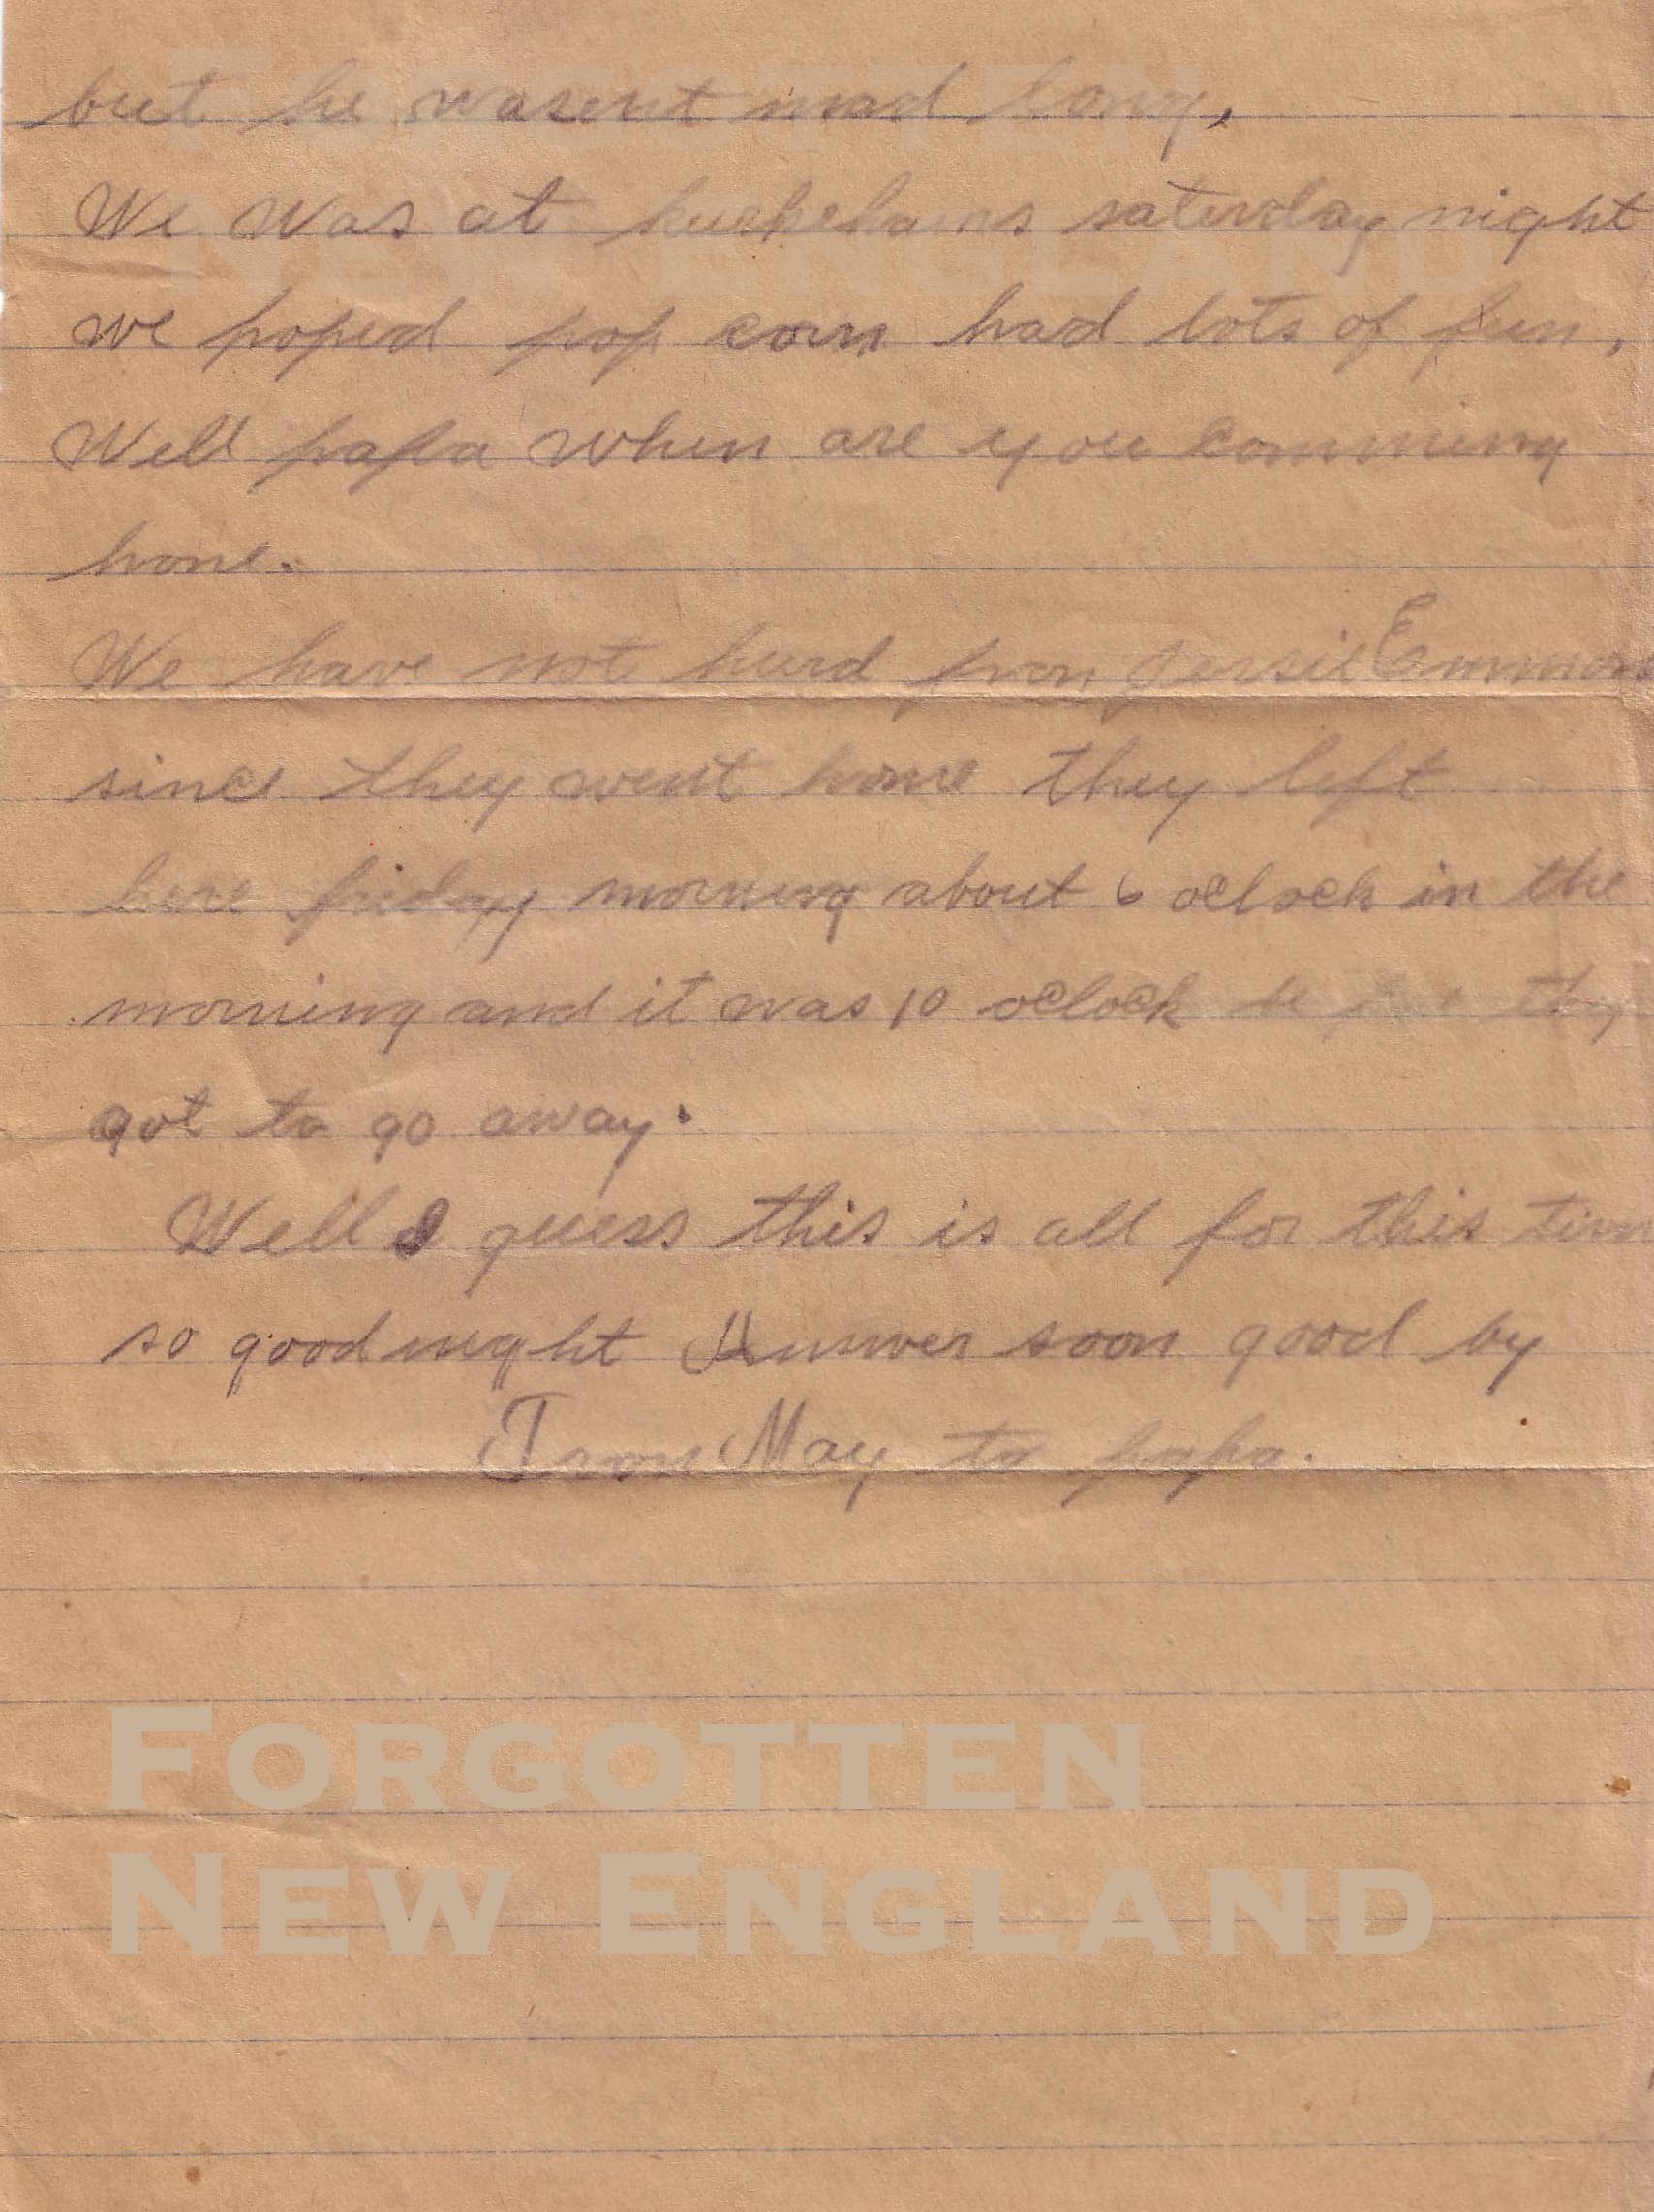 but he wasent mad long,
We Was at saturday night
we poped pop corn had lots of fun,
Well papa when are you comming
home.
We have not hurd from Emmons
since they went home they left
here friday morning about 6 oclock in the
morning and it was 10 oclock be fore they
got to go away.
Well I guess this is all for this time
so good night Answer soon good by
From May to papa.
FORGOTTEN
NEW ENGLAND
FORGOTTEN
NEW ENGLAND